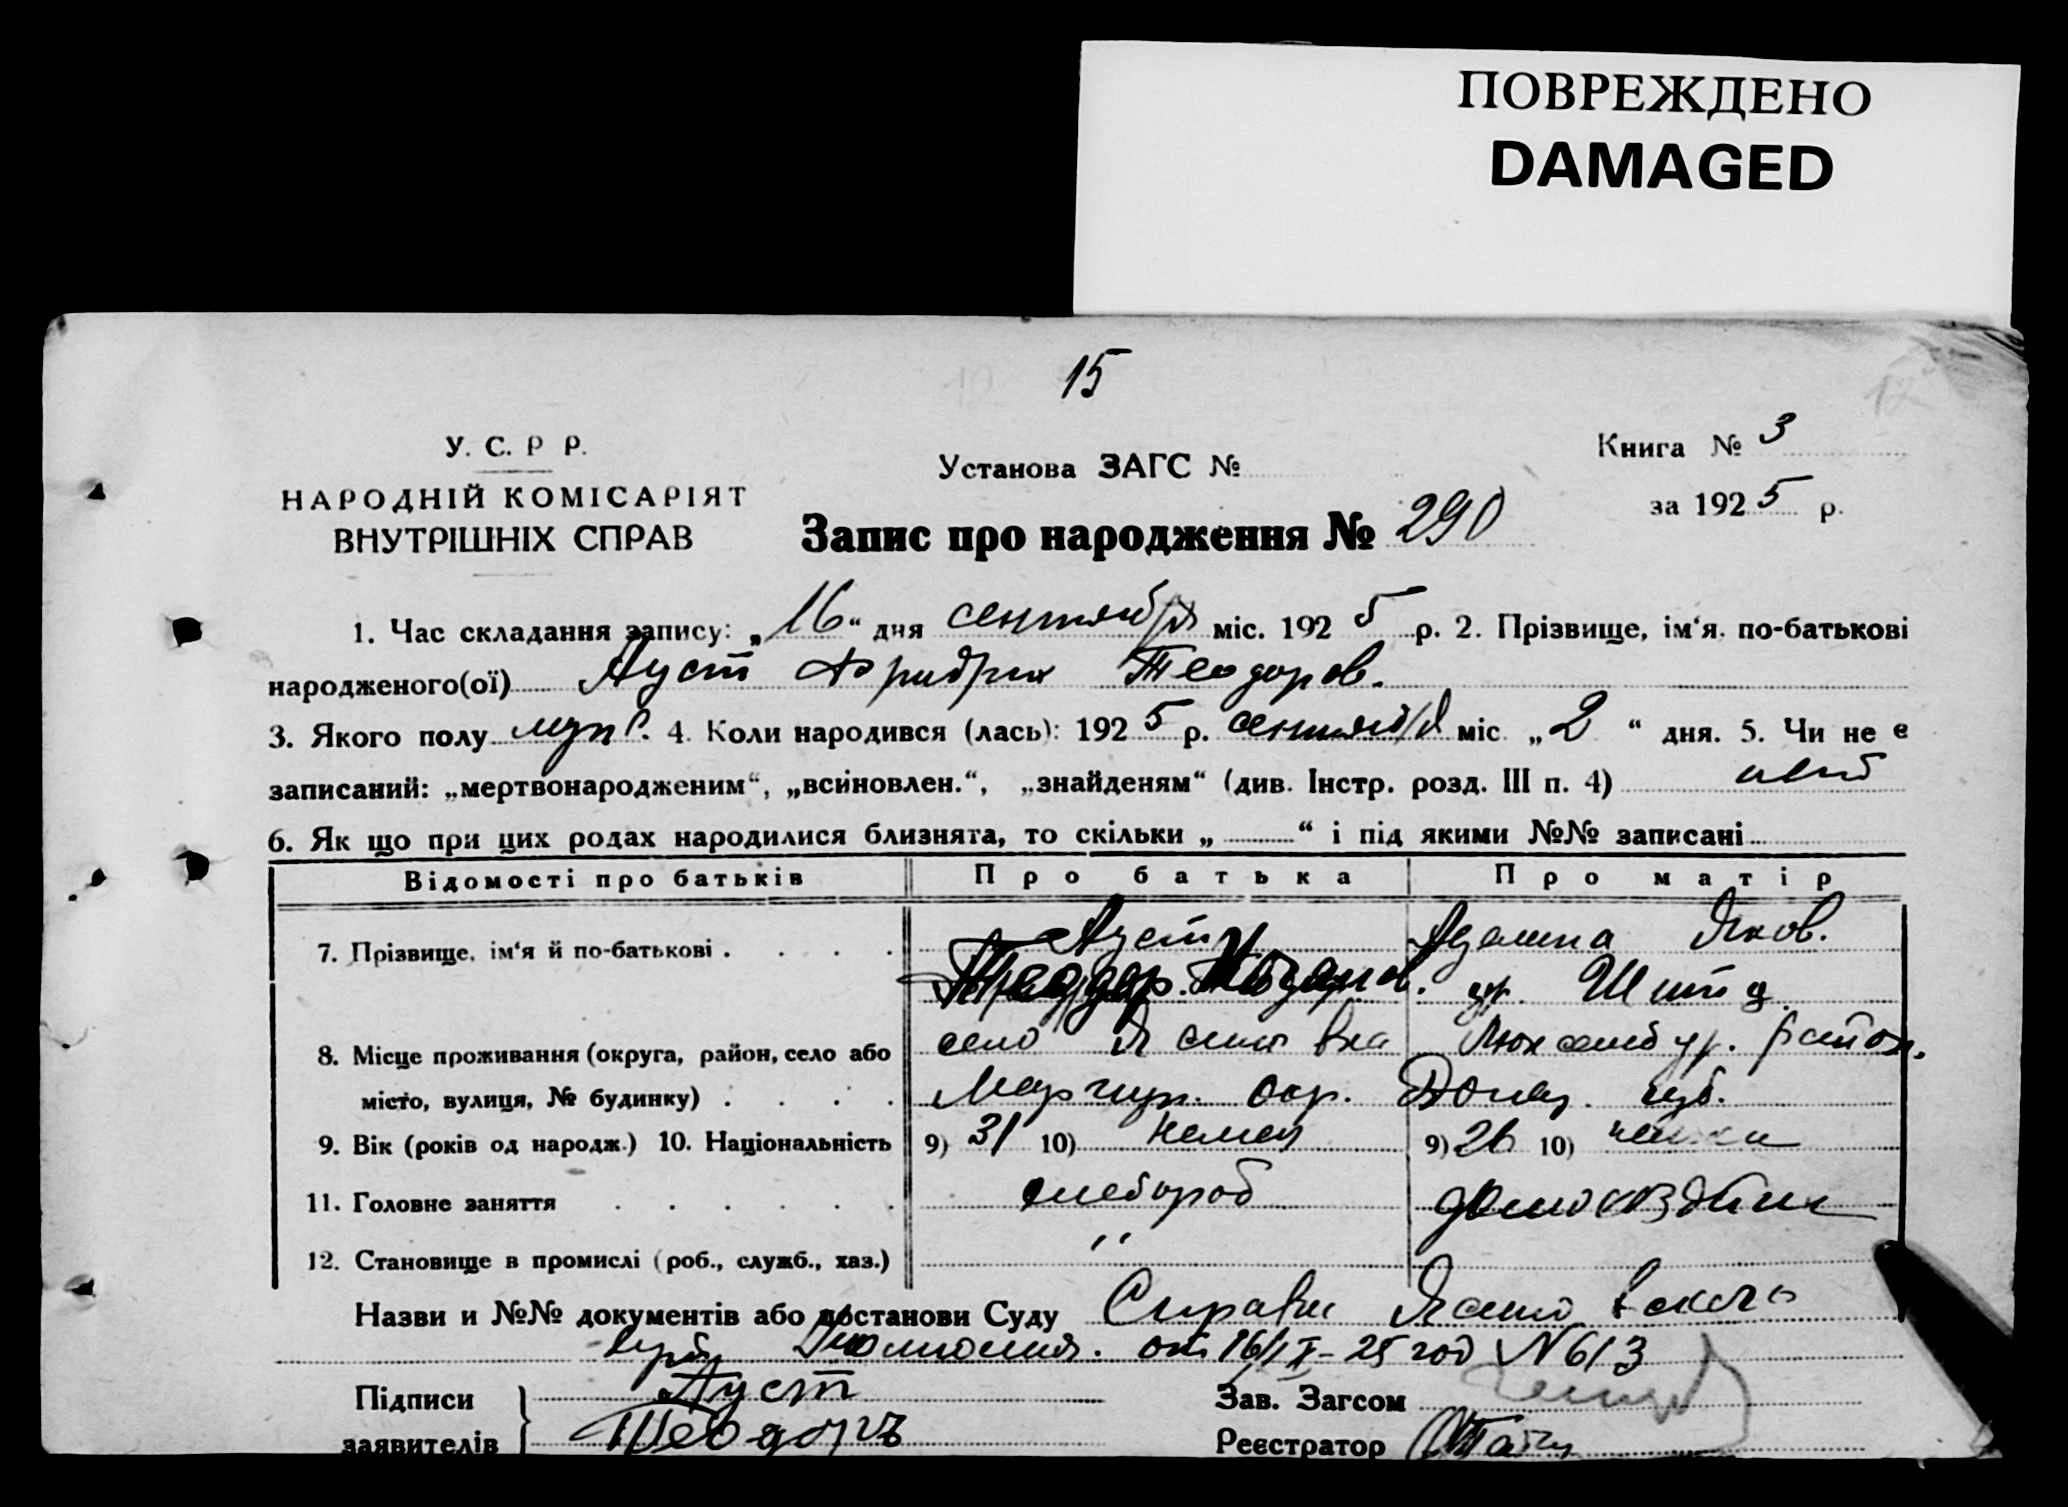 ПОВРЕЖДЕНО
DAMAGED
15
У. С. Р Р.
НАРОДНІЙ КОМІСАРІЯТ
ВНУТРІШНІХ СПРАВ
Установа ЗАГС №
Книга № 3
за 1925 р.
Запис про народження № 290
1. Час складання запису: „16“ дня сентября міс. 1925 р. 2. Прізвище, ім‘я, по-батькові
народженого(ої) Ауст Фридрих Теодоров.
3. Якого полу муж. 4. Коли народився (лась): 1925 р. сентября міс. „2“ дня. 5. Чи не є
записаний: „мертвонародженим“, „всиновлен.“, „знайденям“ (див. Інстр. розд. III п. 4) нет
6. Як що при цих родах народилися близнята, то скільки „ “ і під якими №№ записані
Відомості про батьків Про батька Про матір
7. Прізвище, ім‘я й по-батькові Ауст Аделина Яков.
Теодор ур. Штиц
8. Місце проживання (округа, район, село або село Ясиновка Люксембур. район.
місто, вулиця, № будинку) Мариуп. окр. Донец. губ.
9. Вік (років од народж.) 10. Національність 9) 31 10) немец 9) 26 10) немка
11. Головне заняття хлебороб домохозяйк
12. Становище в промислі (роб., служб., хаз.) "
Назви и №№ документів або постанови Суду Справка
от 16/IX-25 год №613
Підписи Ауст Зав. Загсом
заявителів Теодоръ Реєстратор